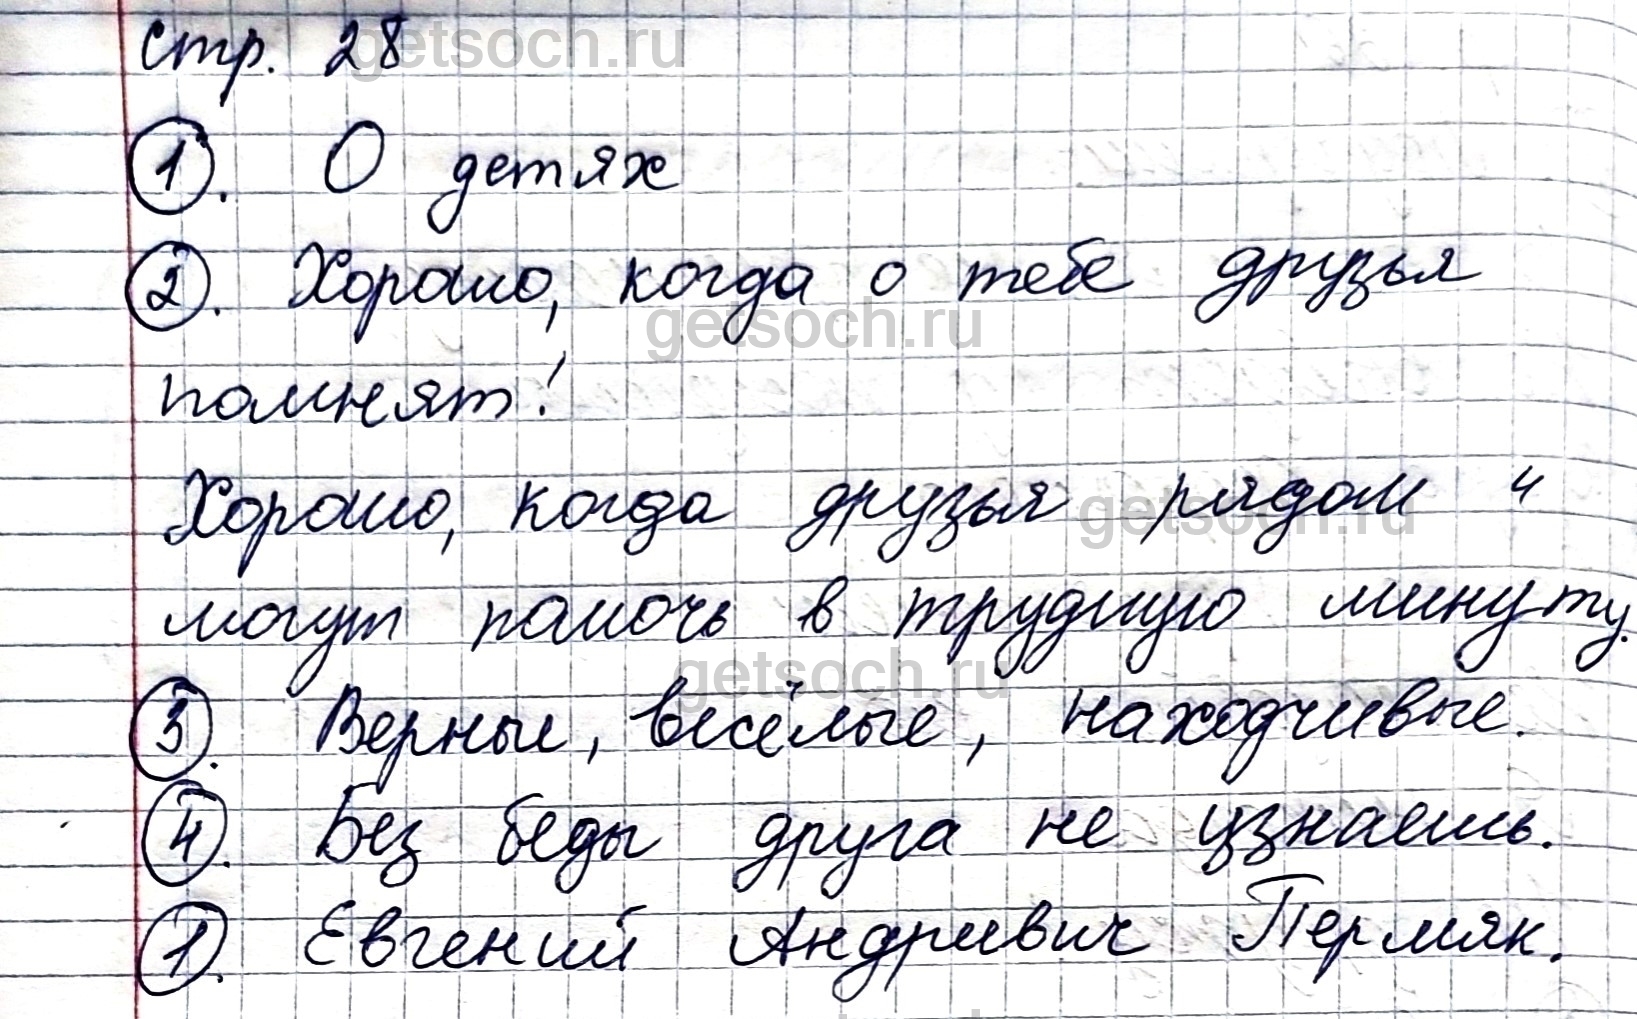 стр. 28
getsoch.ru
1. О детях
2. Хорошо, когда о тебе друзья
getsoch.ru
помнят!
Хорошо, когда друзья рядом и
getsoch.ru
могут помочь в трудную минуту.
getsoch.ru
3. Верные, весёлые, находчивые.
4. Без беды друга не узнаешь.
1. Евгений Андреевич Пермяк.